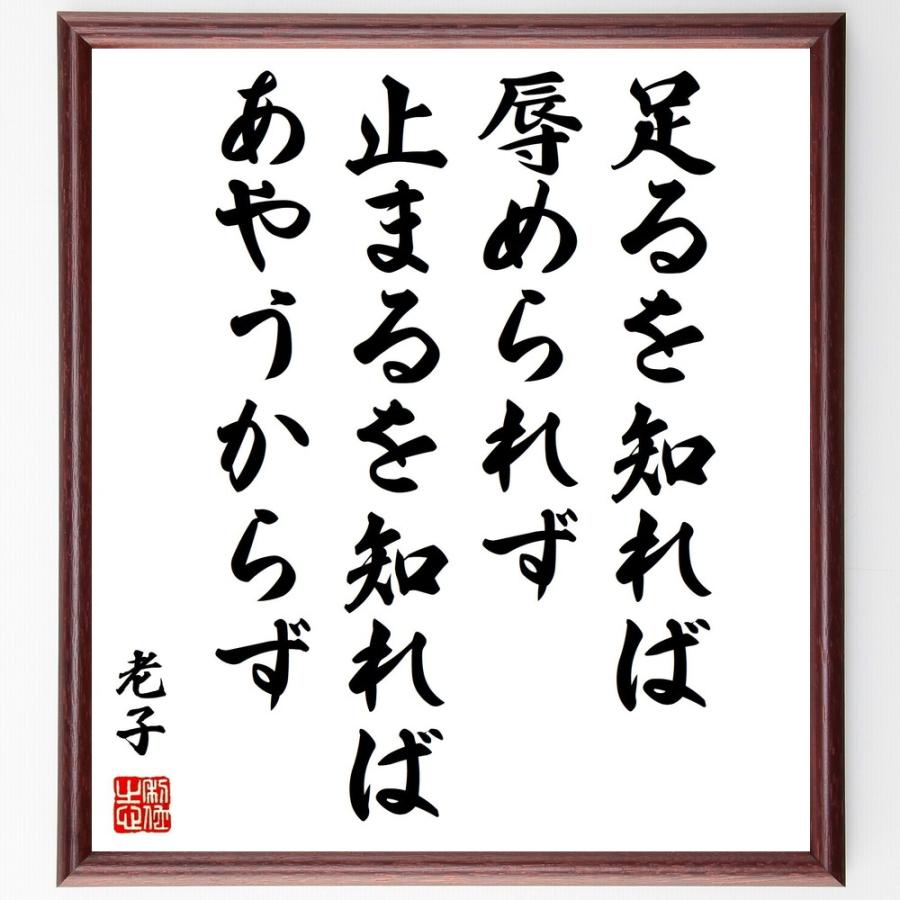 足るを知れば
辱められず
止まるを知れば
あやうからず
老子